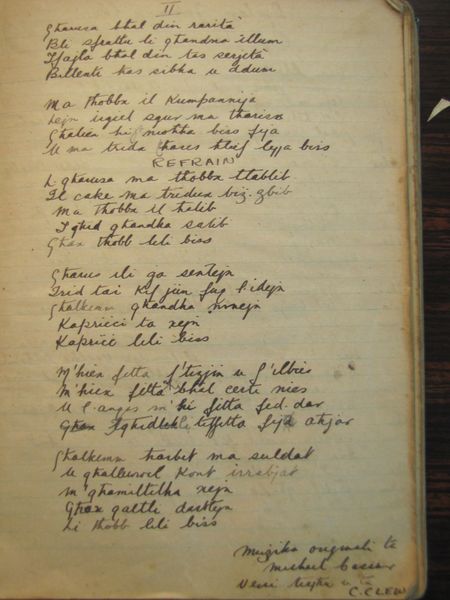 II
Għarusa bħal din rarità
Bli sfrattu li għandna illum
Tfajla bħal din tas serjetà
Billenti kas sibha u ddum
Ma tħobbx il Kumpannija
Lejn irġiel żgur ma tħarisx
Għaliex hi moħħa biss fija
U ma tridx ħares ħlief lejja biss
REFRAIN
L għarusa ma tħobbx titlablib
Il cake ma tridux biż-żbib
Ma tħobb il ħalib
Tgħid għandha salib
Għax tħobb lili biss
Għarus ili ga sentejn
Irid tai Kif jiin fuq l-idejn
Għalkemm għandha
Kapriċċi ta xejn
Kapriċċi lili biss
M'hiex fitta f'tiżjin u f'ilbies
M'hiex fitta bħal ċerti nies
U l-anqas m'hi fitta fid-dar
Għax tiffitta fija aħjar
Għalkemm ħarbet ma suldat
U għalhekk Kont irrabjat
M'għamiltilha xejn
Għax qaltli darbtejn
Li tħobb lili biss
Mużika oriġinali ta
Versi
C. CLEW